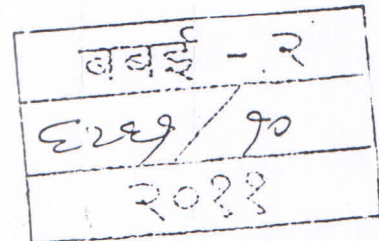 बबई - २
६२६१/१०
२०११